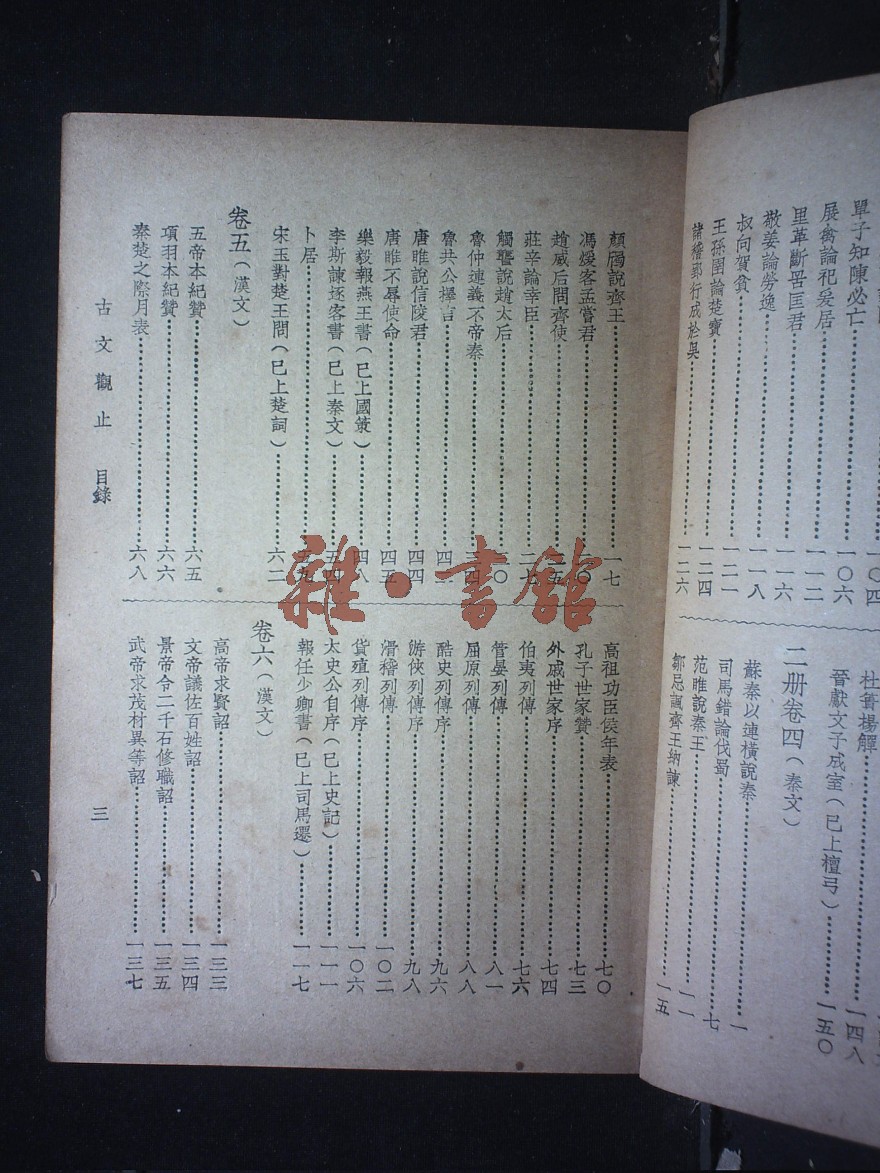 一〇四
單子知陳必亡……一〇六
展禽論祀爰居……一一二
里革斷罟匡君……一一六
敬姜論勞逸……一一八
叔向賀貧……一二一
王孫圉論楚寶……一二四
諸稽郢行成於吳……一二六
杜蕢揚觶……一四八
晉獻文子成室（已上檀弓）……一五〇
二册卷四（秦文）
蘇秦以連橫說秦……一
司馬錯論伐蜀……七
范雎說秦王……一一
鄒忌諷齊王納諫……一五
顏斶說齊王……一七
馮煖客孟嘗君……〇
趙威后問齊使……五
莊辛論幸臣……二七
觸讋說趙太后……〇
魯仲連義不帝秦……三四
魯共公擇言……四一
唐雎說信陵君……四四
唐雎不辱使命……四五
樂毅報燕王書（已上國策）……四八
李斯諫逐客書（已上秦文）……五四
卜居……五九
宋玉對楚王問（已上楚詞）……六二
卷五（漢文）
五帝本紀贊……六五
項羽本紀贊……六六
秦楚之際月表……六八
高祖功臣侯年表……七〇
孔子世家贊……七三
外戚世家序……七四
伯夷列傳……七六
管晏列傳……八一
屈原列傳……八八
酷吏列傳序……九六
游俠列傳序……九八
滑稽列傳……一〇二
貨殖列傳序……一〇六
太史公自序（已上史記）……一一一
報任少卿書（已上司馬遷）……一一七
卷六（漢文）
高帝求賢詔……一三三
文帝議佐百姓詔……一三四
景帝令二千石修職詔……一三五
武帝求茂材異等詔……一三七
古文觀止 目錄
三
雜·書館